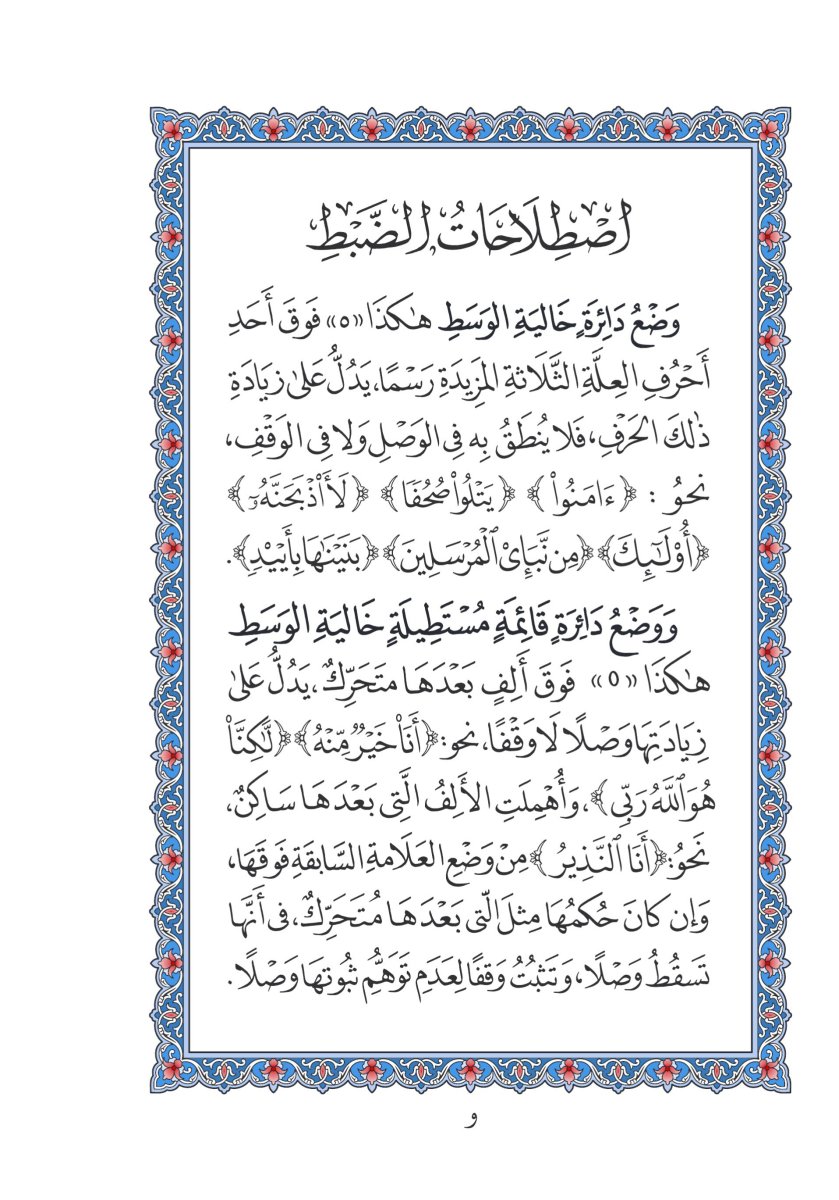 اصْطِلَاحَاتُ الضَّبْطِ
وَضْعُ دَائِرَةٍ خَالِيَةِ الوَسَطِ هٰكَذَا «ه» فَوْقَ أَحَدِ
أَحْرُفِ العِلَّةِ الثَّلَاثَةِ المَزِيدَةِ رَسْمًا، يَدُلُّ عَلىٰ زِيَادَةِ
ذٰلكَ الحَرْفِ، فَلا يُنْطَقُ بِه فِى الوَصْلِ وَلا فِى الوَقْفِ،
نحوُ : ﴿ءَامَنُواْ﴾ ﴿يَتْلُواْ صُحُفًا﴾ ﴿لَأَاْذْبَحَنَّهُۥٓ﴾
﴿أُوْلَٰٓئِكَ﴾ ﴿مِن نَّبَإِيْ ٱلْمُرْسَلِينَ﴾ ﴿بَنَيْنَٰهَا بِأَيْيْدٍ﴾.
وَوَضْعُ دَائِرَةٍ قَائِمَةٍ مُسْتَطِيلَةٍ خَالِيَةِ الوَسَطِ
هٰكَذَا «٥» فَوْقَ أَلِفٍ بَعْدَهَا مُتَحَرِّكٌ، يَدُلُّ عَلىٰ
زِيَادَتِهَا وَصْلًا لَا وَقْفًا، نحو: ﴿أَنَا۠ خَيْرٌ مِّنْهُ﴾ ﴿لَّٰكِنَّا۠
هُوَ ٱللَّهُ رَبِّي﴾، وَأُهْمِلَتِ الأَلِفُ الَّتى بَعْدَهَا سَاكِنٌ،
نَحْوُ: ﴿أَنَا ٱلنَّذِيرُ﴾ مِنْ وَضْعِ العَلَامَةِ السَّابِقَةِ فَوْقَهَا،
وَإِن كَانَ حُكْمُهَا مِثْلَ الَّتى بَعْدَهَا مُتَحَرِّكٌ، فى أَنَّهَا
تَسْقُطُ وَصْلًا، وَتَثْبُتُ وَقْفًا لِعَدَمِ تَوَهُّمِ ثُبُوتِهَا وَصْلًا.
و